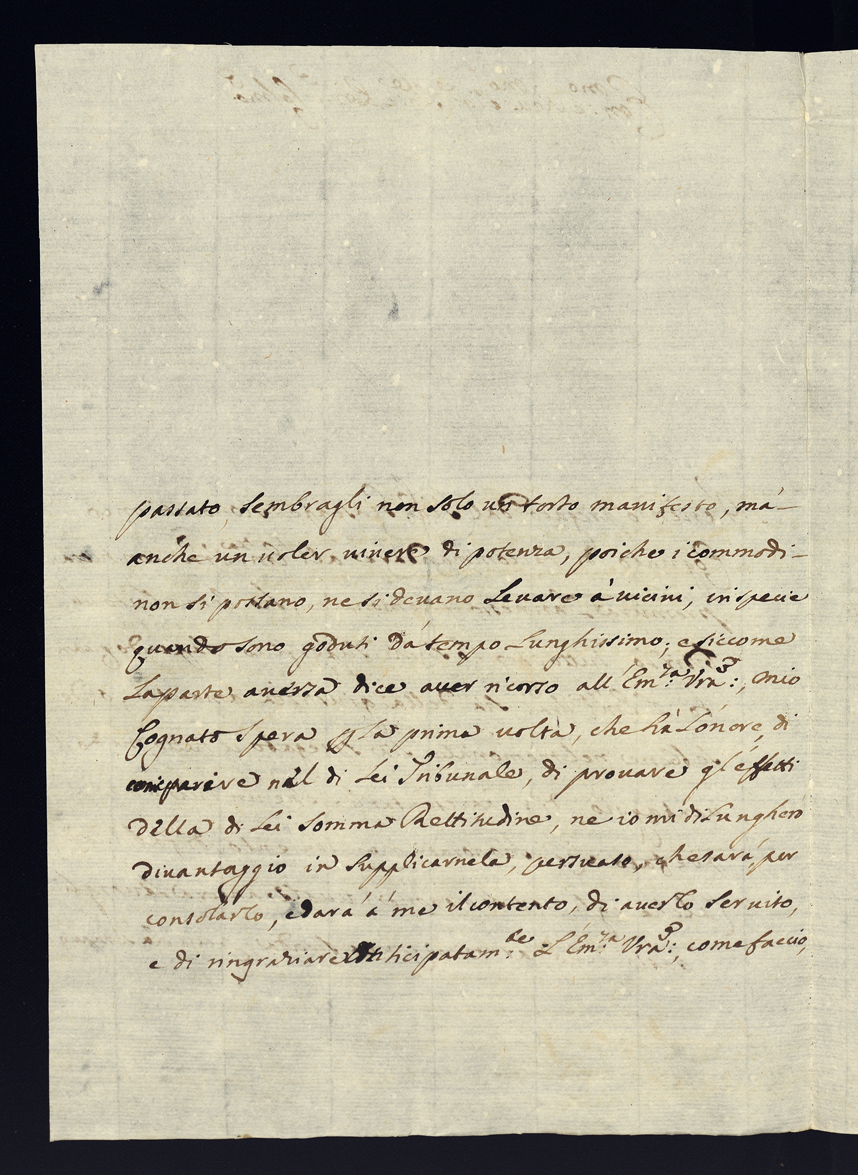 passato, sembragli non solo un torto manifesto, má
anche un voler vivere di potenza, poiche i commodi
non si possano, ne si devano Levare á vicini, in specie
quando sono goduti dá tempo Lunghissimo; e siccome
La parte aversa dice aver ricorso all' Em.za Vra:, mio
Cognato spera p La prima volta, che há L'onore di
comparire nel di Lei Tribunale, di provare gl'effetti
della di Lei somma Rettitudine, ne io mi diLungheró
divantaggio in supplicarnela, persuaso, che sará per
consolarlo, e dará á me il contento, di averLo servito,
e di ringraziare anticipatam.te L'Em.za Vra:, come faccio,